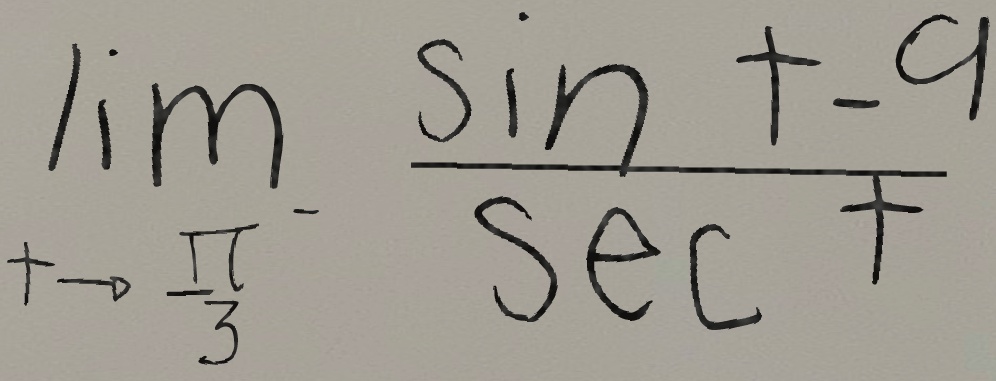 lim t → π/3⁻ (sin t - 9)/(sec t)